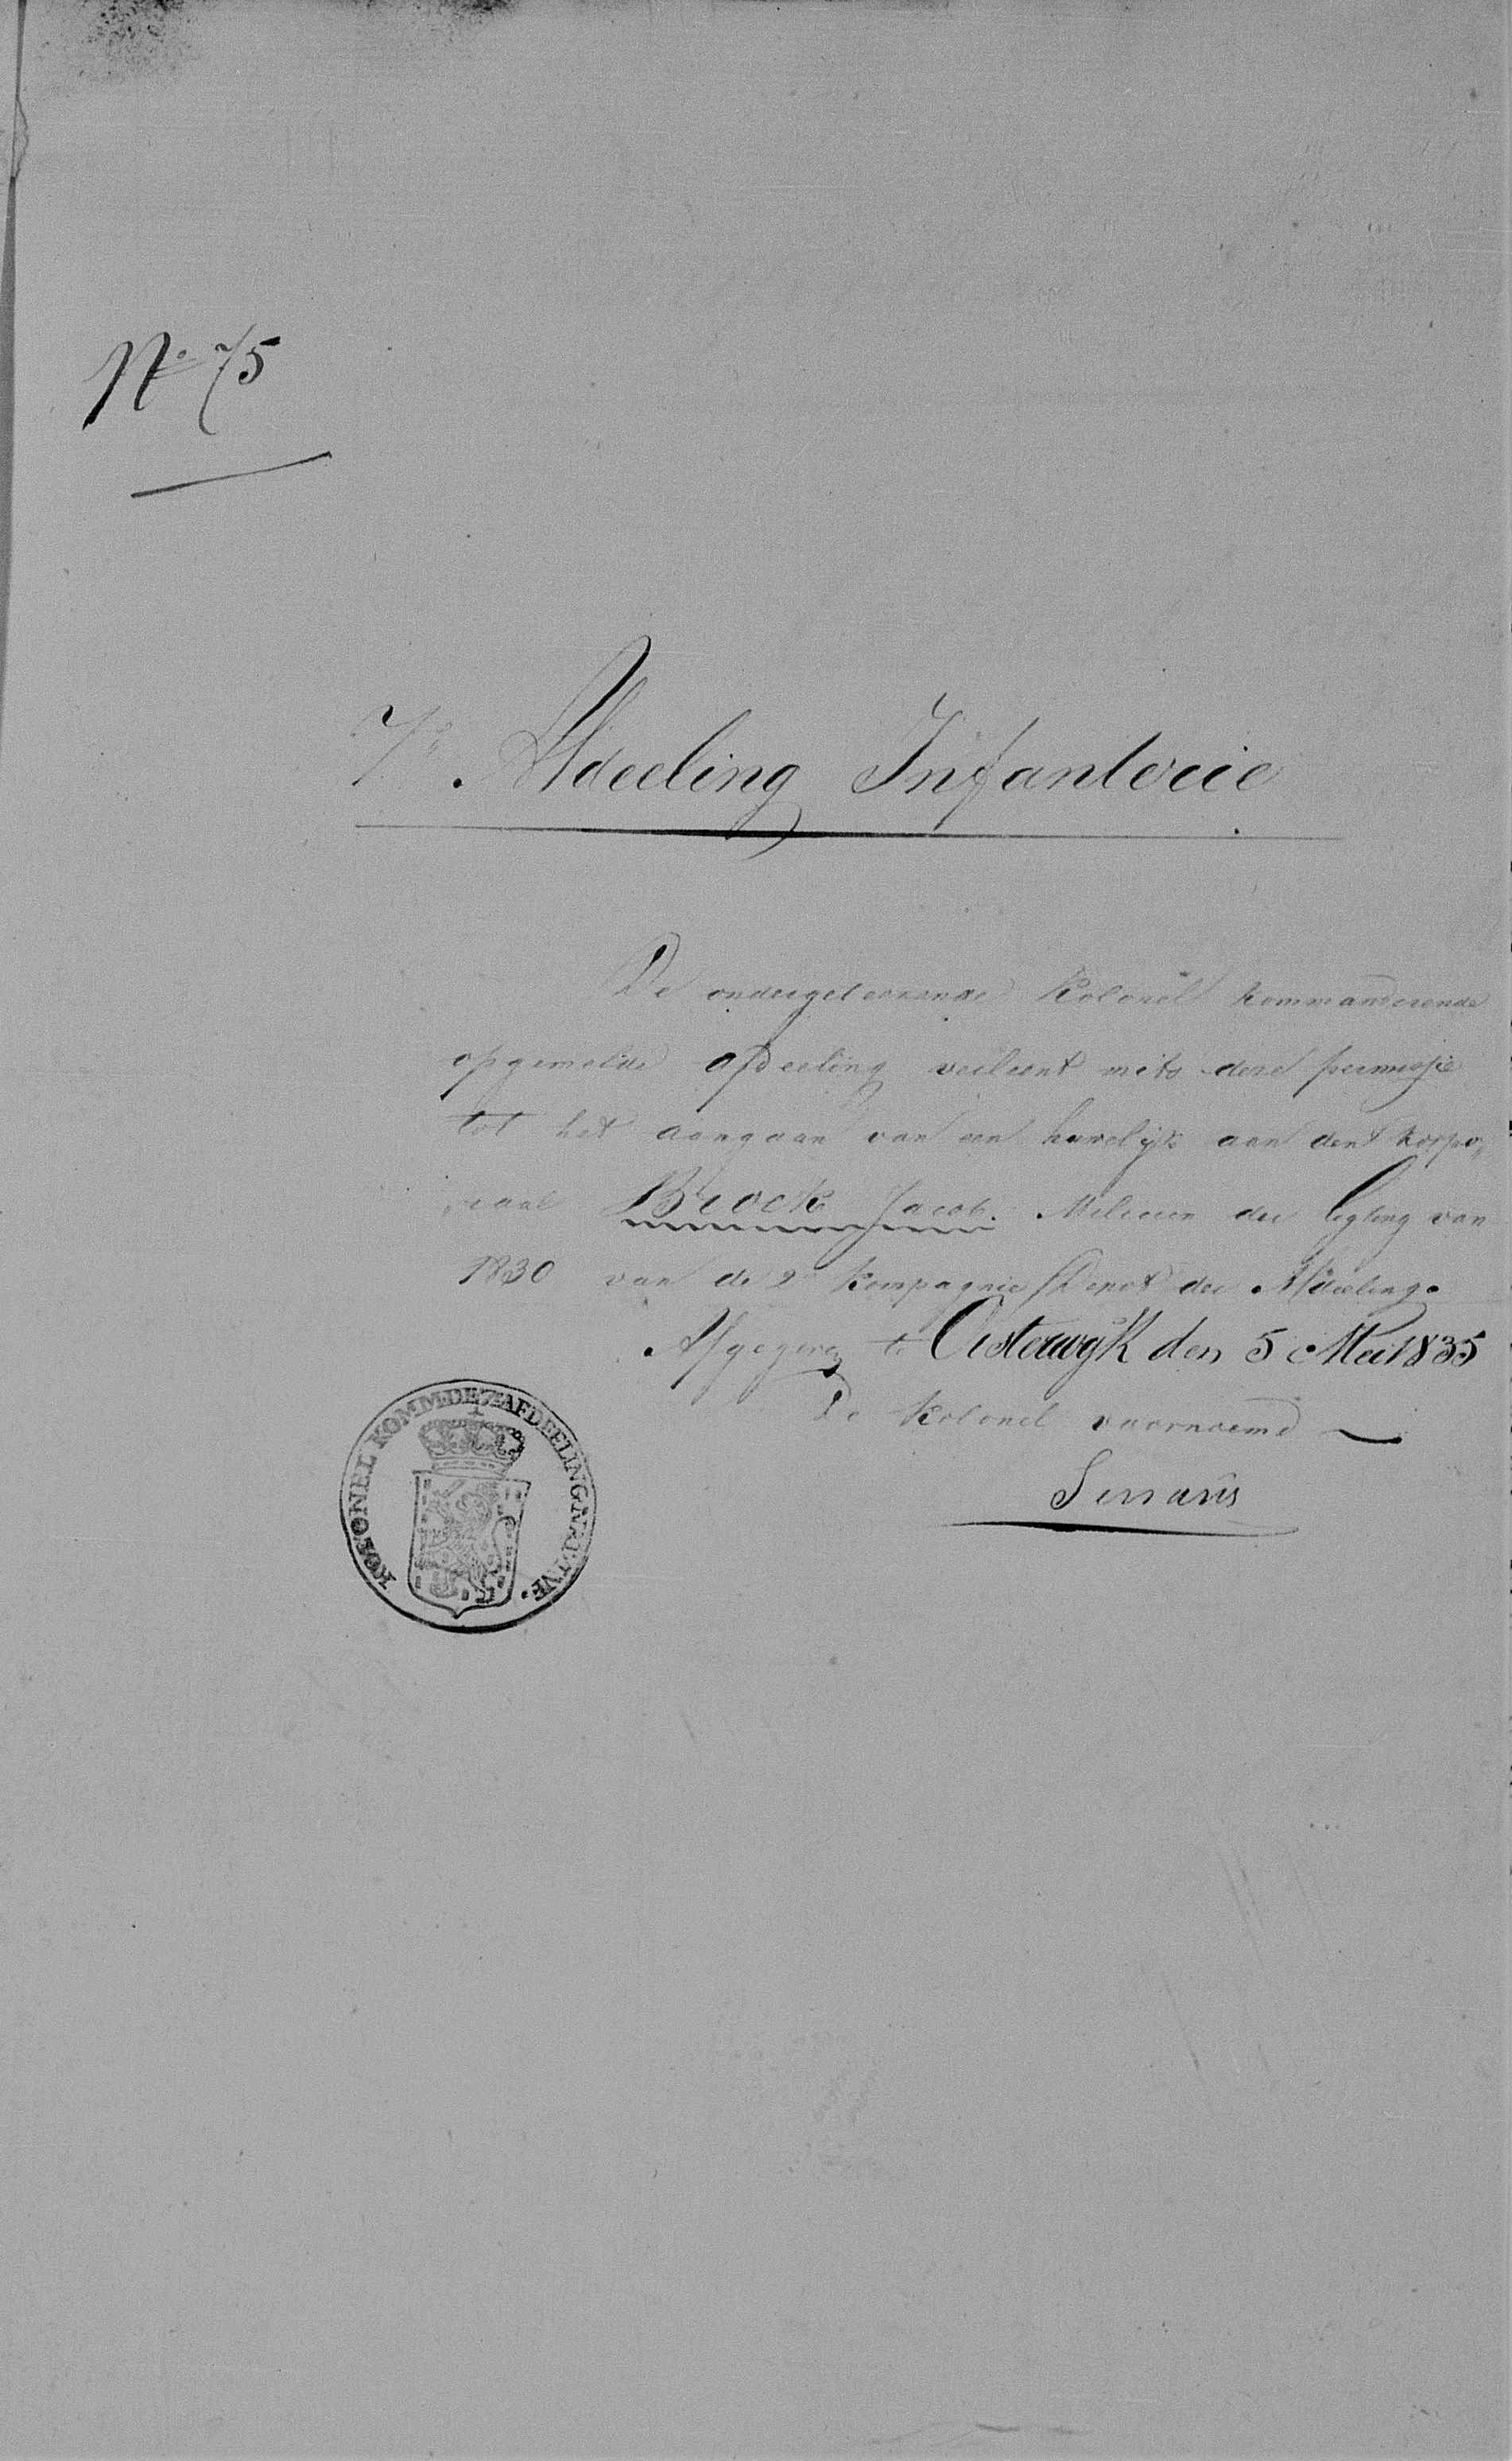 No 75
7e. Afdeeling Infanterie
De ondergeteekende Kolonel kommanderende
opgemelde afdeeling verleent mits deze permissie
tot het aangaan van een huwelijk aan den korpo„
„raal Brock Jacob. Milicien der ligting van
1830 van de 2e Kompagnie Depot der Afdeeling.
Afgegeven te Oisterwyk den 5 Mei 1835
De Kolonel voornoemd
KOLONEL KOMM.DE 7E AFDEELING INFIE.